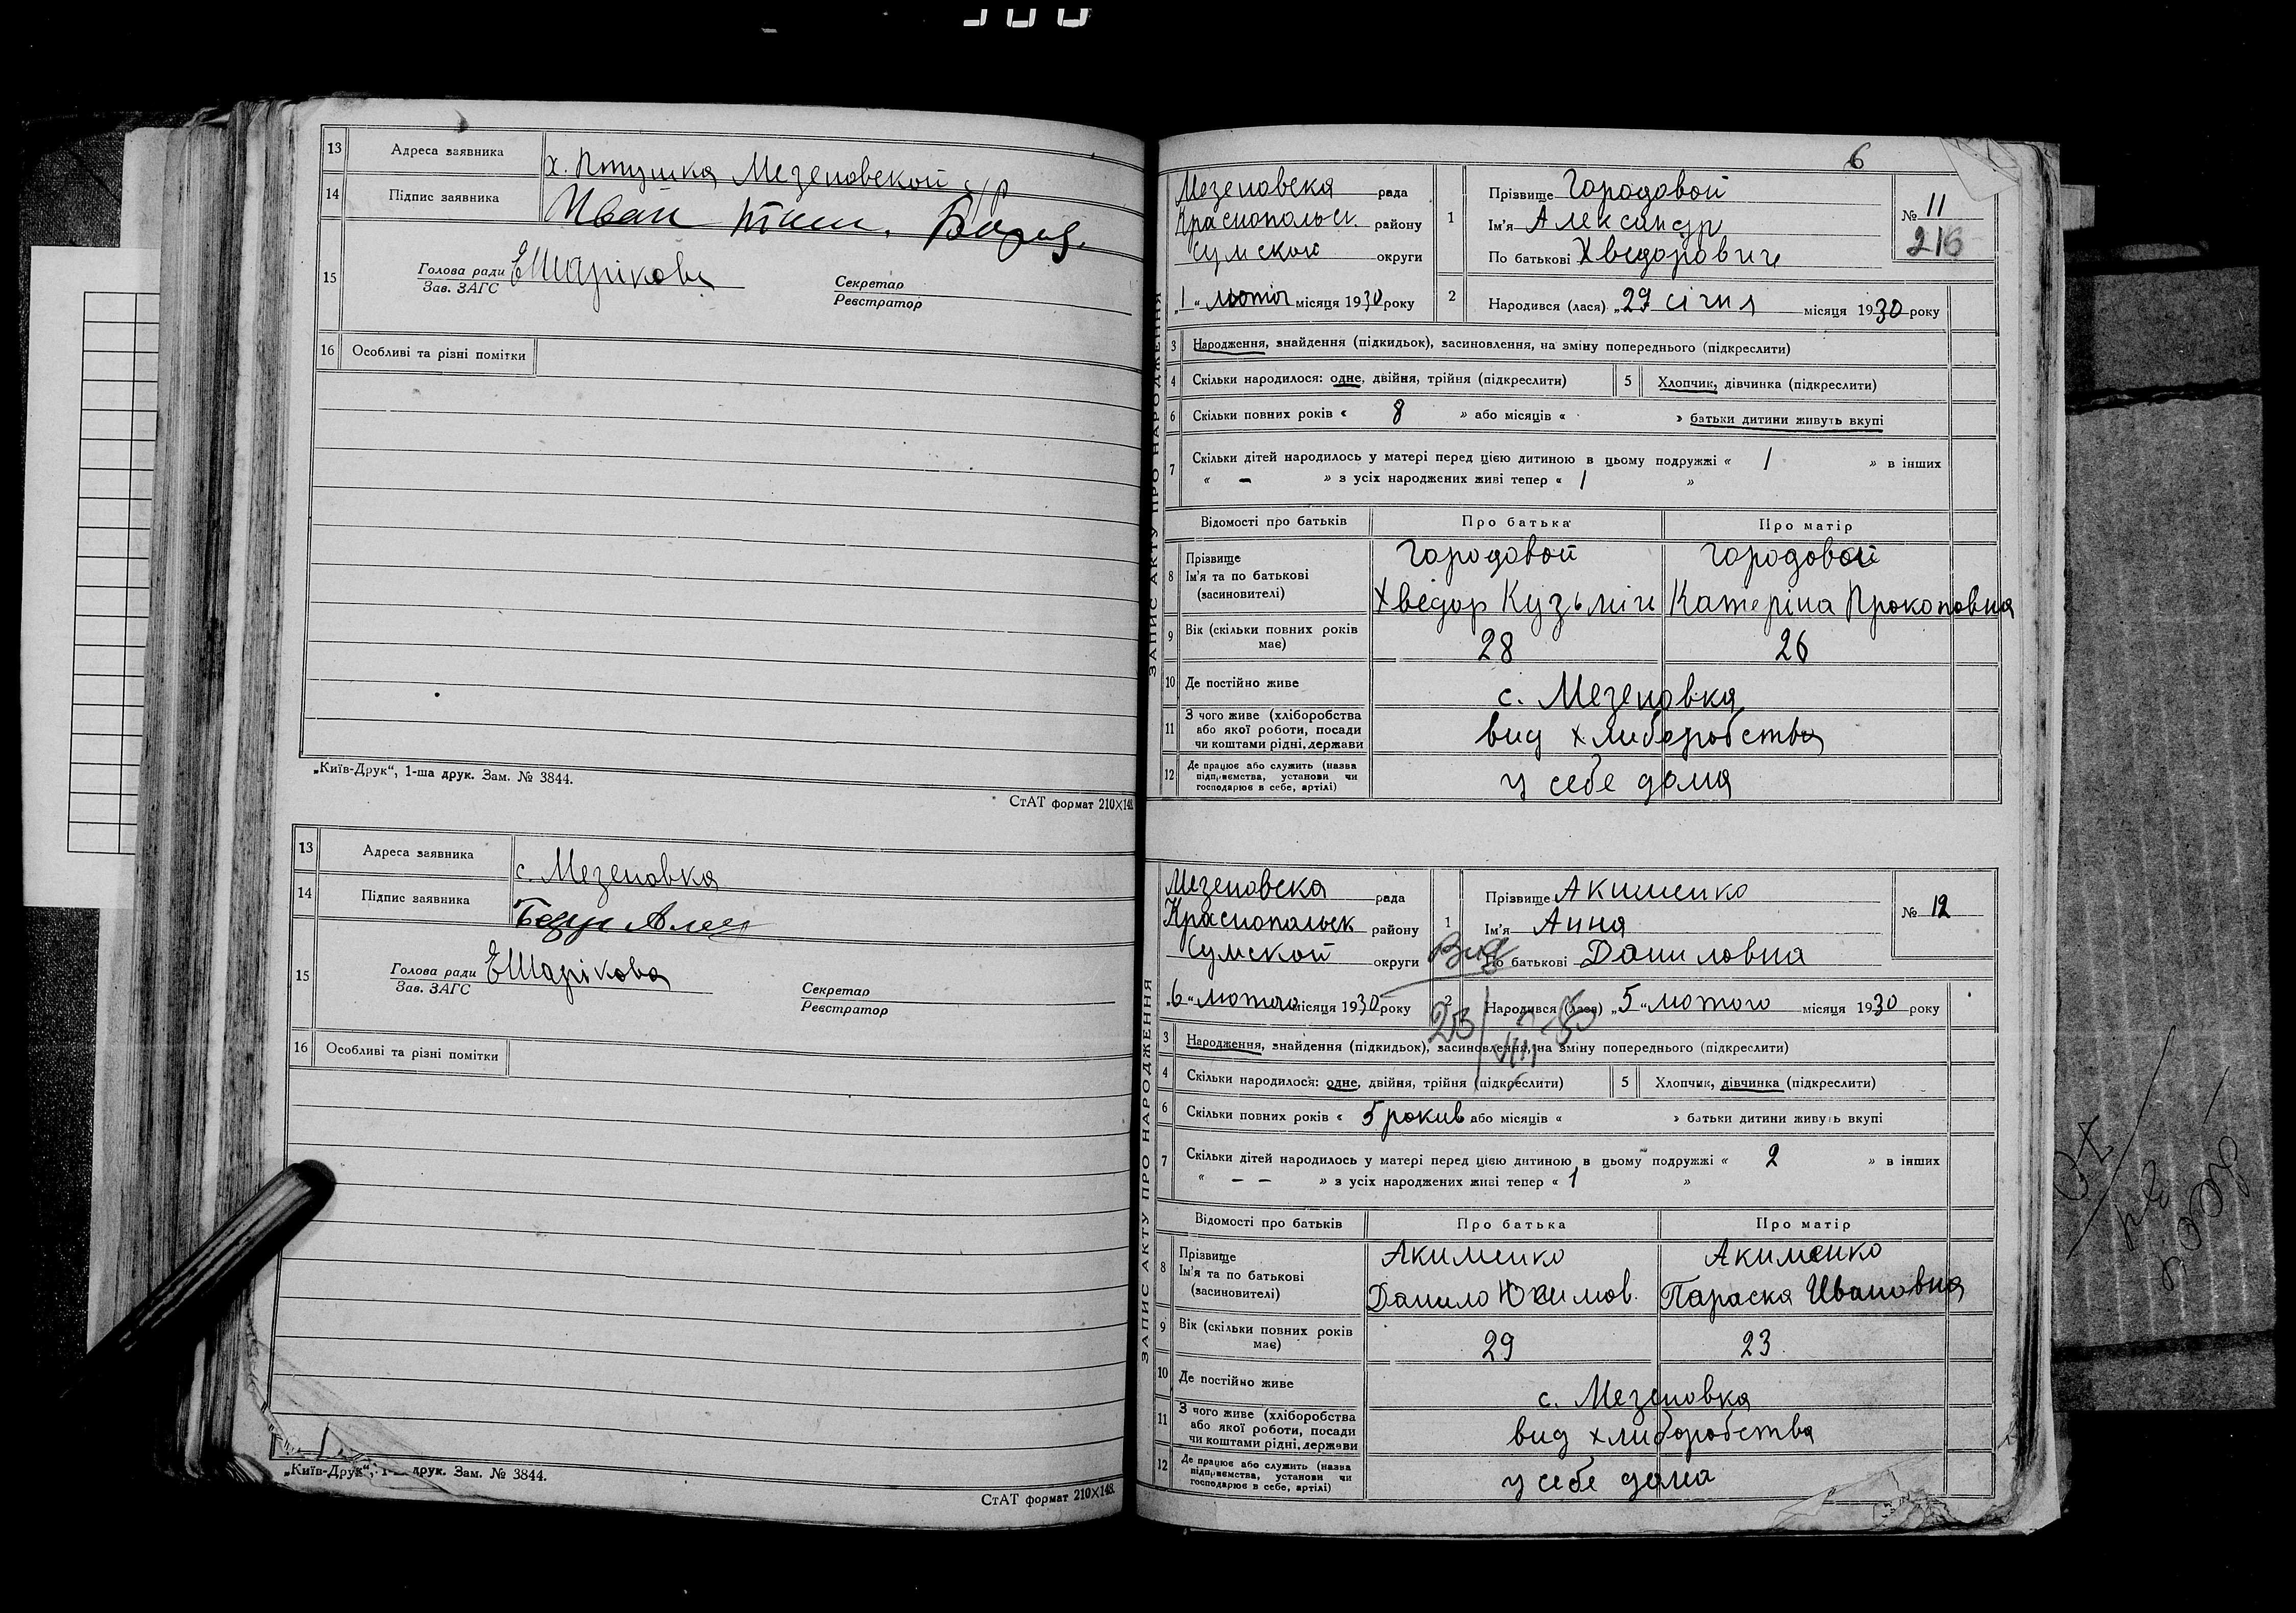 13 Адреса заявника х. Птушка Мезеновской с/р
14 Підпис заявника Иван
15 Голова ради ЕШарікова Секретар
Зав. ЗАГС Реєстратор
16 Особливі та різні помітки
„Київ-Друк“, 1-ша друк. Зам. № 3844.
СтАТ формат 210×148.
13 Адреса заявника с. Мезеновка
14 Підпис заявника
15 Голова ради ЕШарікова Секретар
Зав. ЗАГС Реєстратор
16 Особливі та різні помітки
„Київ-Друк“, 1-ша друк. Зам. № 3844.
СтАТ формат 210×148.
6
ЗАПИС АКТУ ПРО НАРОДЖЕННЯ
Мезеновска рада
Краснопольск. району
Сумской округи
„1“ лютог місяця 1930 року
1 Прізвище Городовой
Ім'я Александр
По батькові Хведорович
№ 11
216
2 Народився (лася) „29 січня місяця 1930 року
3 Народження, знайдення (підкидьок), засиновлення, на зміну попереднього (підкреслити)
4 Скільки народилося: одне, двійня, трійня (підкреслити) 5 Хлопчик, дівчинка (підкреслити)
6 Скільки повних років « 8 » або місяців « » батьки дитини живуть вкупі
7 Скільки дітей народилось у матері перед цією дитиною в цьому подружжі « 1 » в інших
« – » з усіх народжених живі тепер « 1 »
Відомості про батьків Про батька Про матір
8 Прізвище Городовой Городовой
Ім'я та по батькові
(засиновителі) Хведор Кузьміч Катеріна Прокоповна
9 Вік (скільки повних років має) 28 26
10 Де постійно живе с. Мезеновка
11 З чого живе (хліборобства або якої роботи, посади чи коштами рідні, держави вид хлиборобства
12 Де працює або служить (назва підприємства, установи чи господарює в себе, артілі) у себе дома
ЗАПИС АКТУ ПРО НАРОДЖЕННЯ
Мезеновска рада
Краснопольск району
Сумской округи
„6“ лютого місяця 1930 року
1 Прізвище Акименко
Ім'я Анна
По батькові Даниловна
№ 12
2 Народився (лася) „5“ лютого місяця 1930 року
3 Народження, знайдення (підкидьок), засиновлення, на зміну попереднього (підкреслити)
4 Скільки народилося: одне, двійня, трійня (підкреслити) 5 Хлопчик, дівчинка (підкреслити)
6 Скільки повних років « 5 рокив або місяців « » батьки дитини живуть вкупі
7 Скільки дітей народилось у матері перед цією дитиною в цьому подружжі « 2 » в інших
« – – » з усіх народжених живі тепер « 1 »
Відомості про батьків Про батька Про матір
8 Прізвище Акименко Акименко
Ім'я та по батькові
(засиновителі) Данило Юхимов. Параска Ивановна
9 Вік (скільки повних років має) 29 23
10 Де постійно живе с. Мезеновка
11 З чого живе (хліборобства або якої роботи, посади чи коштами рідні, держави вид хлиборобства
12 Де працює або служить (назва підприємства, установи чи господарює в себе, артілі) у себе дома